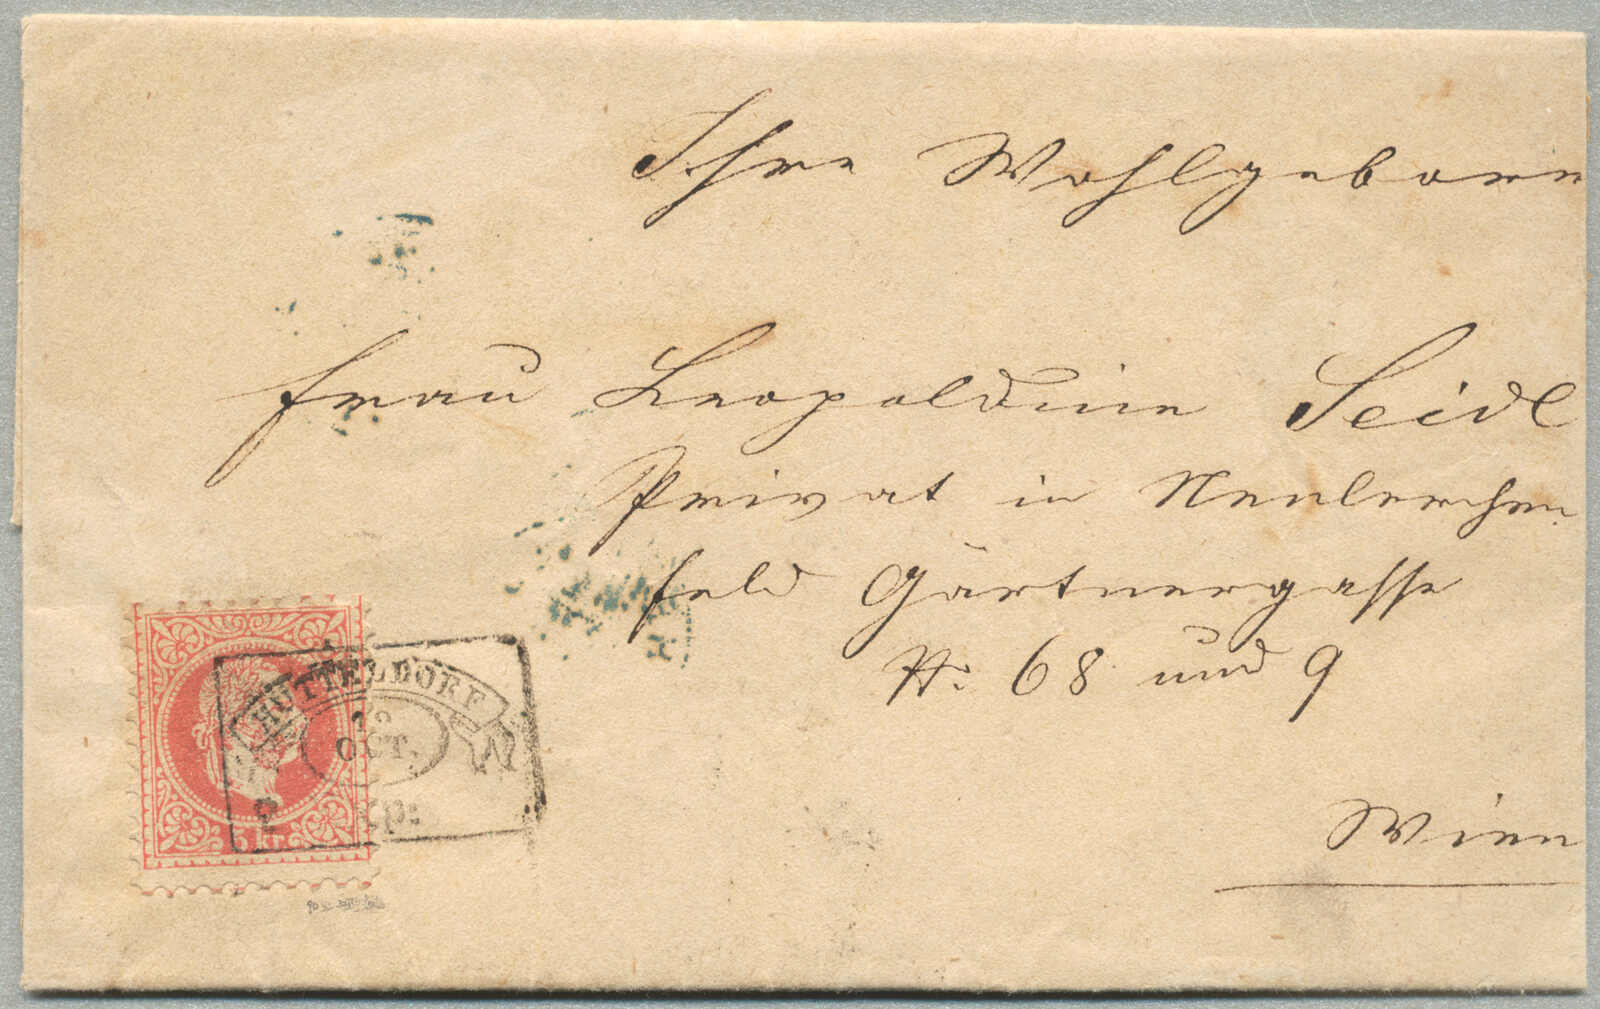 Ihre Wohlgeborn
Frau Leopoldine Seidl
Privat in Neulerchen
feld Gärtnergasse
Nr. 68 und 9
Wien
HÜTTELDORF
OCT.
Exp:
5 kr